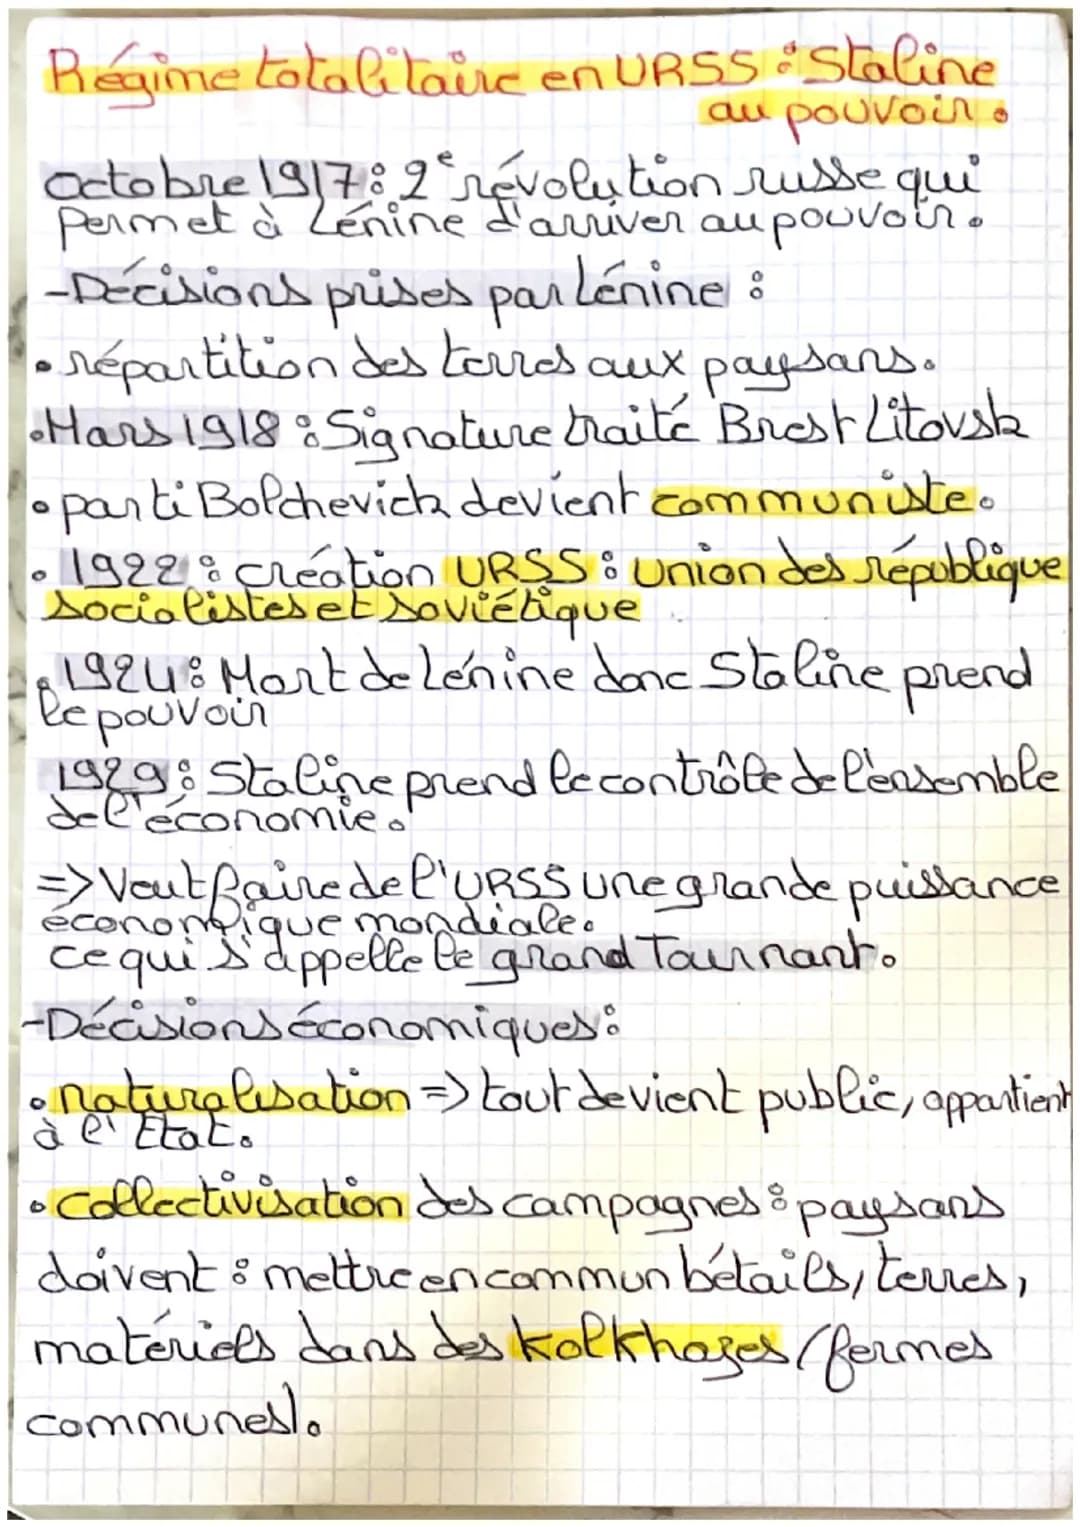 Régime totalitaire en URSS : Staline
au pouvoir.
octobre 1917 : 2e révolution russe qui
permet à Lénine d'arriver au pouvoir.
-Décisions prises par Lénine :
• répartition des terres aux paysans.
• Mars 1918 : Signature traité Brest Litovsk
• parti Bolchevick devient communiste.
• 1922 : création URSS : Union des république
socialistes et soviétique
• 1924 : Mort de Lénine donc Staline prend
le pouvoir
1929 : Staline prend le contrôle de l'ensemble
de l'économie.
=> Veut faire de l'URSS une grande puissance
économique mondiale.
ce qui s'appelle le grand Tournant.
-Décisions économiques :
• naturalisation => tout devient public, appartient
à l'Etat.
• collectivisation des campagnes : paysans
doivent : mettre en commun bétails, terres,
matériels dans des kolkhozes (fermes
communes).